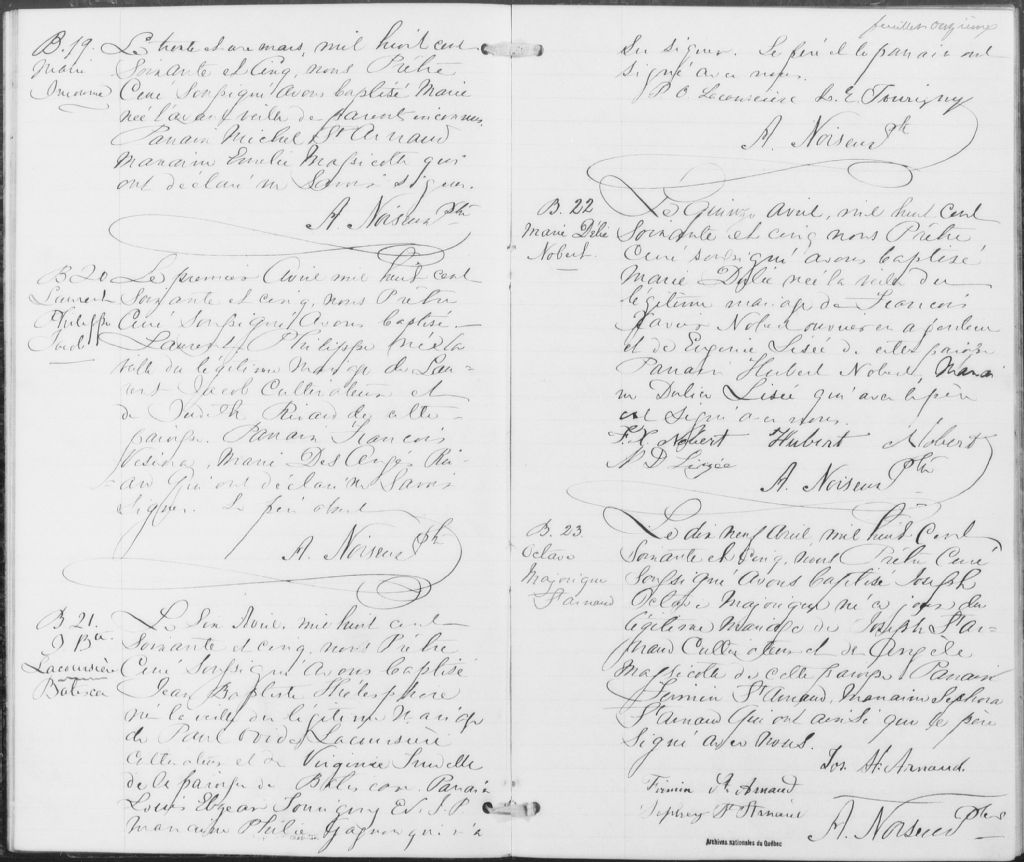 B. 19.
Marie
Inconnue
Le trente et une mars, mil huit cent
Soixante et Cinq, nous Prêtre
Curé Soussigné Avons baptisé Marie
née l'avant veille de parents inconnus.
Parrain Michel St Arnaud
Marraine Emélie Massicotte qui
ont déclaré ne Savoir Signer.
A. Noiseux Ptre
B. 20
Laurent
Philippe
Jacob
Le premier Avril mil huit cent
Soixante et cinq, nous Prêtre
Curé Soussigné Avons baptisé
Laurent Philippe né la
veille du légitime Mariage de Lau-
rent Jacob Cultivateur et
de Judith Rivard de cette
paroisse. Parrain François
Marie Des Anges Ri-
qui ont déclaré ne Savoir
Signer. Le père absent
A. Noiseux Ptre
B. 21.
J Bte
Lacoursière
Batiscan
Le Six Avril, mil huit cent
Soixante et cinq, nous Prêtre
Curé Soussigné Avons baptisé
Jean Baptiste Thélesphore
né la veille du légitime Mariage
de Paul Ovide Lacoursière
Cultivateur et de Virginie Trudelle
de la paroisse de Batiscan. Parrain
Louis Elzear Tourigny
marraine Philie Gagnon qui n'a
feuillet onzième
Su signer. Le père et le parrain ont
signé avec nous.
P. O. Lacoursière Ls. E. Tourigny
A. Noiseux Ptr
B. 22
Marie Délie
Nobert.
Le Quinze Avril, mil huit cent
Soixante et cinq nous Prêtre
Curé soussigné avons baptisé
Marie Délie née la veille du
légitime mariage de François
Xavier Nobert ouvrier
et de Eugenie Lisée de cette paroisse
Parrain Hubert Nobert, Marrai
ne Lisée qui avec le père
ont Signé avec nous.
F. X. Nobert Hubert Nobert
A. Noiseux Ptre
B. 23
Octave
Majorique
St Arnaud
Le dix neuf Avril, mil huit Cent
Soixante et Cinq, nous Prêtre Curé
Soussigné Avons baptisé Joseph
Octave Majorique né ce jour du
légitime Mariage de Joseph St Ar-
naud Cultivateur et de Angèle
Massicotte de cette paroisse Parrain
Firmin St Arnaud, Marraine Sephora
St Arnaud Qui ont ainsi que le père
Signé avec Nous.
Jos St Arnaud
Firmin St Arnaud
St Arnaud
A. Noiseux Ptre
Archives nationales du Québec